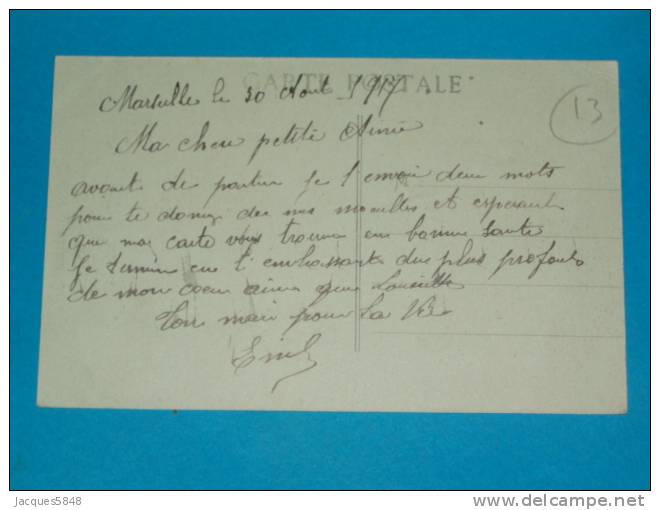 CARTE POSTALE
Marseille le 30 Aout 1917.
13
Ma chere petite Aimée
avant de partir je t'envoie deux mots
pour te donner de mes nouvelles et esperant
que ma carte vous trouvera en bonne sante
Je termine en t'embrassant du plus profond
de mon coeur ainsi que Louisette
Ton mari pour la Vie
Emil
Jacques5848
delcampe.net